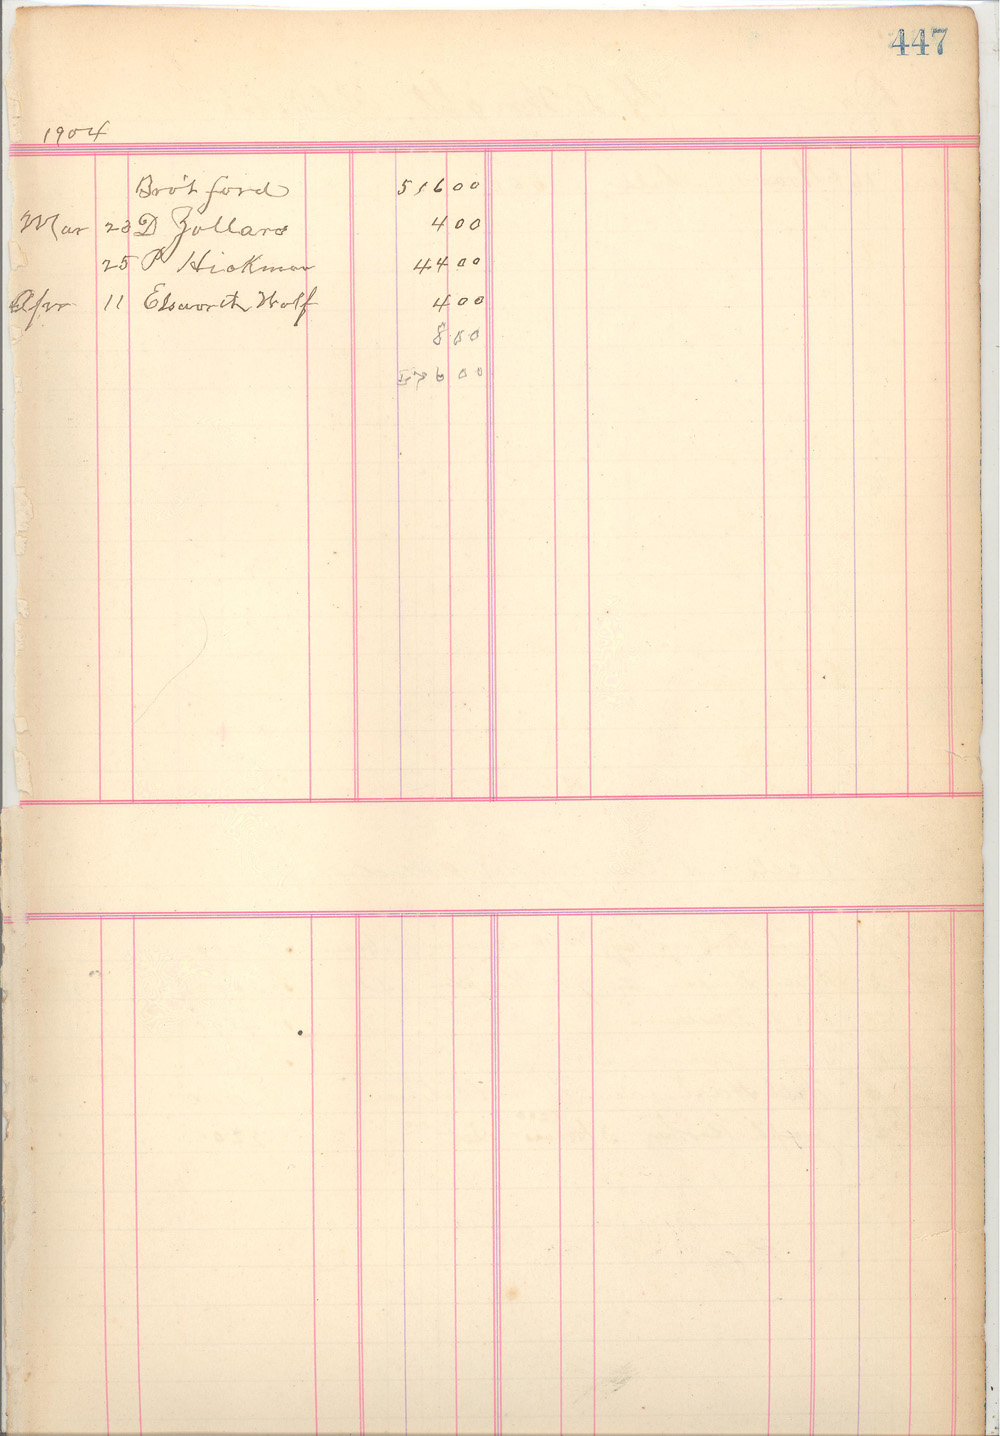 447
1904
Bro't ford 516 00
Mar 23 D Zollars 4 00
25 P Hickman 44 00
Apr 11 Elsworth Wolf 4 00
8 00
576 00